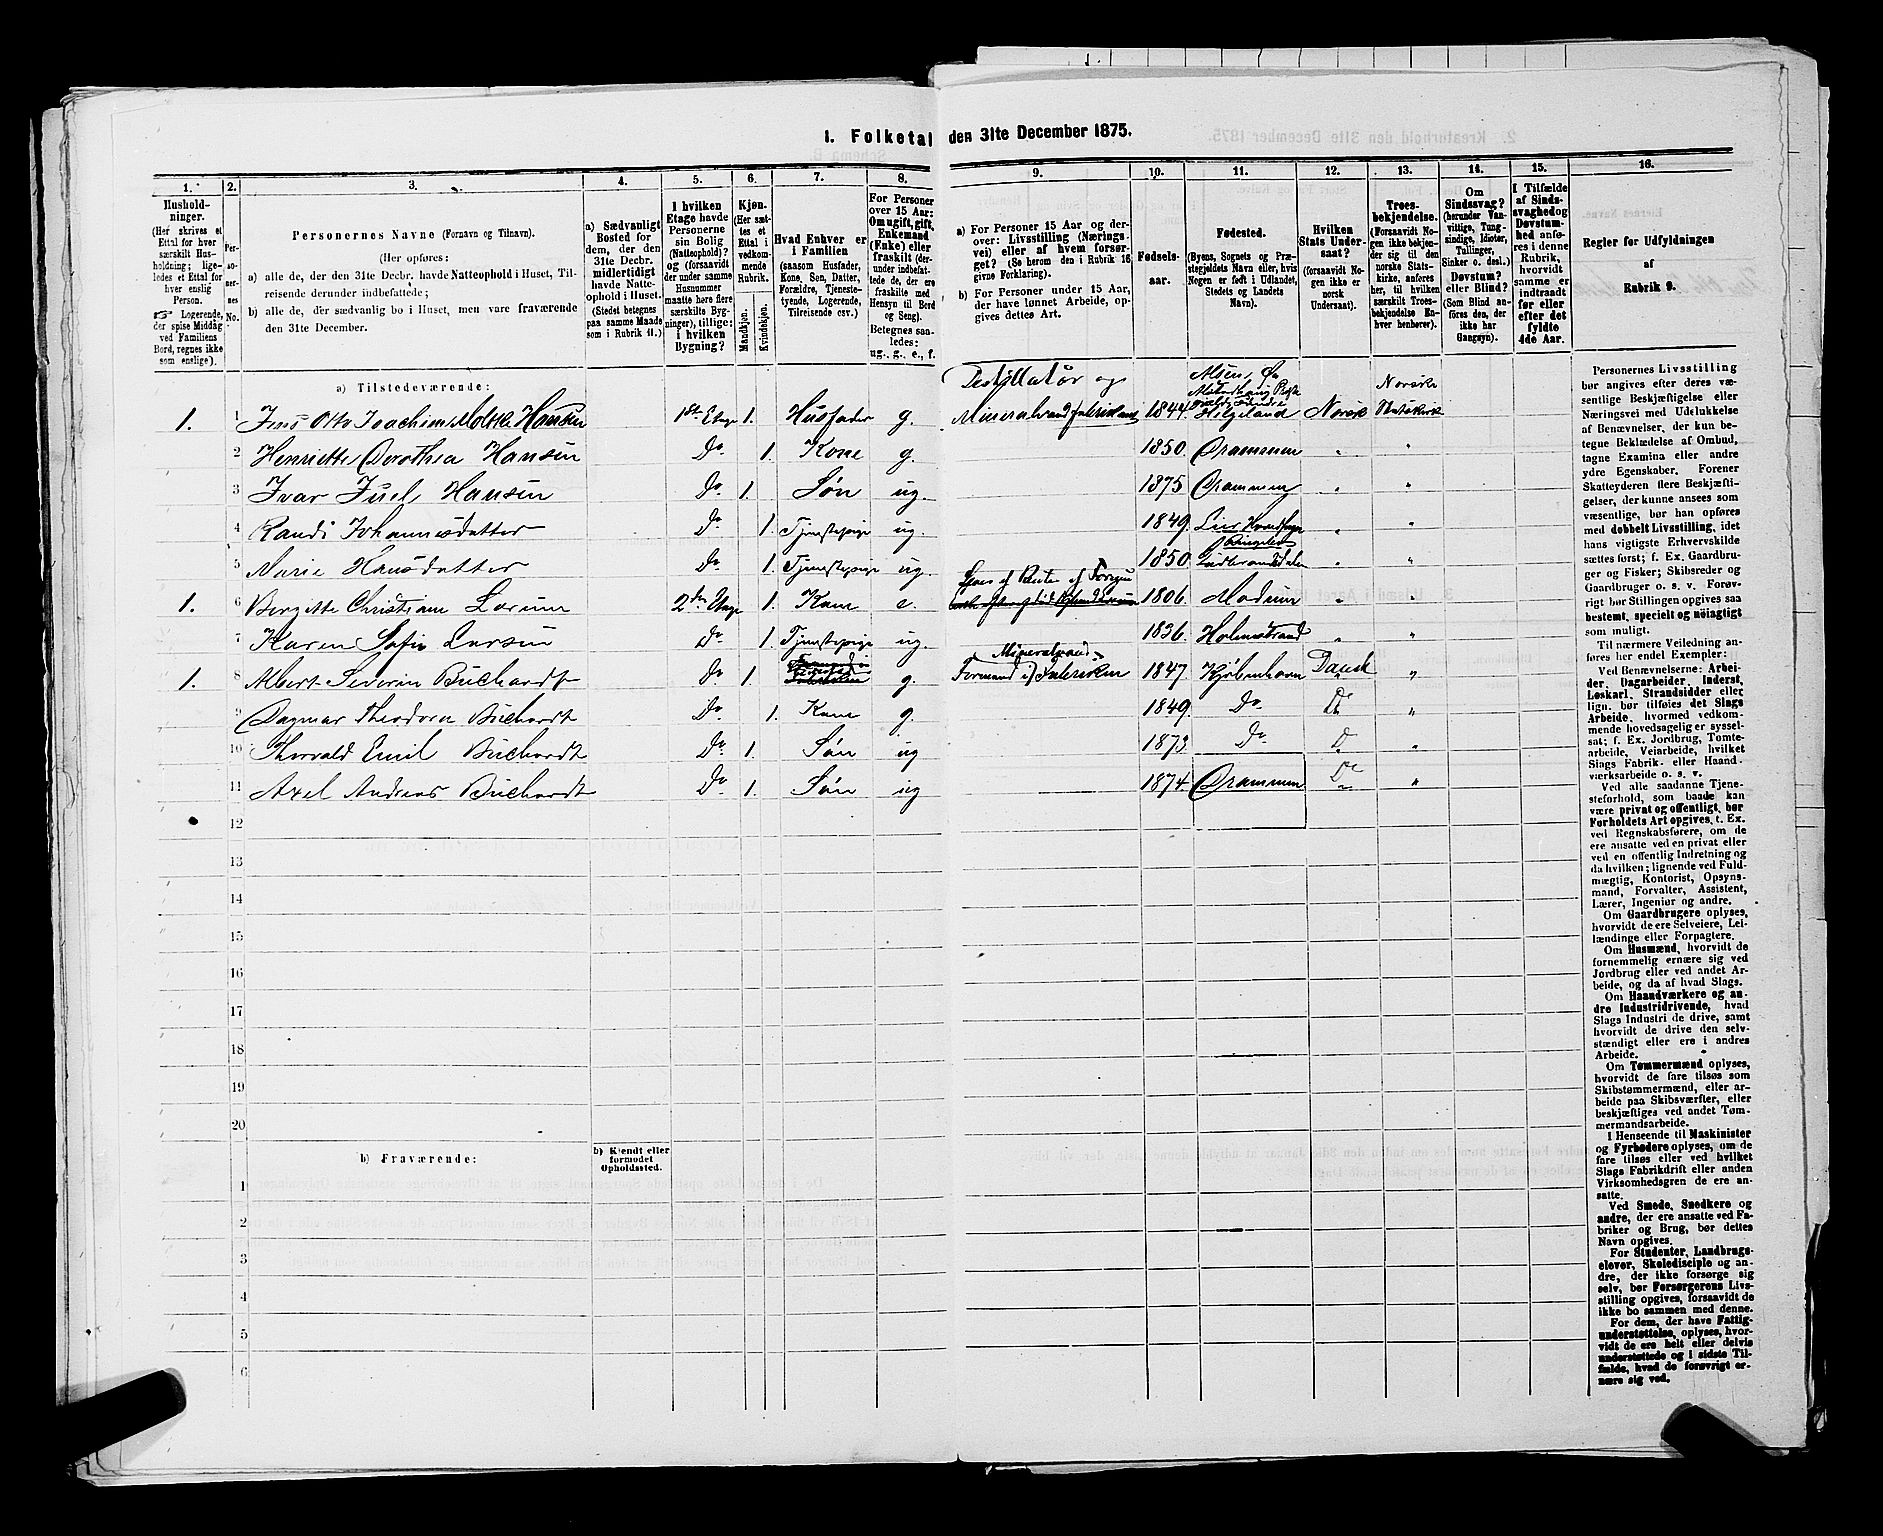 1. Folketal den 31te December 1875.
1.
2.
3.
4.
5.
6.
7.
8.
9.
10.
11.
12.
13.
14.
15.
16.
Hushold-
ninger.
(Her skrives et
Ettal for hver
særskilt Hus-
holdning; lige-
ledes et Ettal for
hver enslig
Person.
☞ Logerende,
der spise Middag
ved Familiens
Bord, regnes ikke
som enslige).
Per-
so-
ner-
nes
No.
Personernes Navne (Fornavn og Tilnavn).
(Her opføres:
a) alle de, der den 31te Decbr. havde Natteophold i Huset, Til-
reisende derunder indbefattede;
b) alle de, der sædvanlig bo i Huset, men vare fraværende
den 31te December.
a) Sædvanligt
Bosted for
dem, der den
31te Decbr.
midlertidigt
havde Natte-
ophold i Huset.
(Stedet betegnes
paa samme Maade
som i Rubrik 11.)
I hvilken
Etage havde
Personerne
sin Bolig
(Natteophold)?
og (forsaavidt
der under samme
Husnummer
maatte høre flere
særskilte Byg-
ninger), tillige: i
hvilken
Bygning?
Kjøn.
(Her sæt-
tes et
Ettal i
vedkom-
mende
Rubrik.)
Mandkjøn.
Kvindekjøn.
Hvad Enhver er
i Familien
(saasom Husfader,
Kone, Søn, Datter,
Forældre, Tjeneste-
tyende, Logerende,
Tilreisende osv.)
For Personer
over 15 Aar:
Om ugift, gift,
Enkemand
(Enke) eller
fraskilt (der-
under indbefat-
tede de, der ere
fraskilte med
Hensyn til Bord
og Seng).
Betegnes saa-
ledes:
ug., g., e., f.
a) For Personer 15 Aar og der-
over: Livsstilling (Nærings-
vei) eller af hvem forsør-
get? (Se herom den i Rubrik 16
givne Forklaring).
b) For Personer under 15 Aar,
der have lønnet Arbeide, op-
gives dettes Art.
Fødsels-
aar.
Fødested.
(Byens, Sognets og Præ-
stegjeldets Navn eller, hvis
Nogen er født i Udlandet,
Stedets og Landets
Navn).
Hvilken
Stats Under-
saat?
(forsaavidt No-
gen ikke er
norsk
Undersaat).
Troes-
bekjendelse.
(Forsaavidt No-
gen ikke bekjen-
der sig til den
norske Stats-
kirke, anføres
her, til hvilken
særskilt Troes-
bekjendelse En-
hver henhører).
Om
Sindssvag?
(herunder Van-
vittige, Tung-
sindige, Idioter,
Tullinger,
Sinker o. desl.)
Døvstum?
eller Blind?
(Som Blind an-
føres den, der
ikke har
Gangsyn).
I Tilfælde
af Sinds-
svaghed og
Døvstum-
hed anfø-
res i denne
Rubrik,
hvorvidt
samme er
indtraadt
før eller
efter det
fyldte
4de Aar.
Regler for Udfyldningen
af
Rubrik 9.
a) Tilstedeværende:
1. 1 Jens Otto Joachim Moltke Hansen 1ste Etage 1. Husfader g. Destillatør og Mineralvandfabrikant 1844. Alsen, Helgeland Norsk Norske Statskirk
2 Henriette Dorothea Hansen Do 1. Kone g. 1850. Drammen " "
3 Ivar Juel Hansen Do 1. Søn ug. 1875 Drammen " "
4 Randi Johannesdatter Do 1. Tjenestepige ug. 1849. Lier " "
5 Marie Hansdatter Do 1. Tjenestepige ug. 1850. Ringebo Gudbrandsdalen " "
1. 6 Bergitte Christiane Lorum 2den Etage 1. Kone e. 1806. Modum " "
7 Karen Sofie Larsen Do 1. Tjenestepige ug. 1836. Holmestrand " "
1. 8 Albert Severin Buchardt Do 1. g. Formand i Mineralvands Fabriken 1847. Kjøbenhavn Dansk "
9 Dagmar Theodora Buchardt Do 1. Kone g. 1849. Do Do "
10 Thorvald Emil Buchardt Do 1. Søn ug 1873. Do Do "
11 Axel Andreas Buchardt Do 1. Søn ug 1874 Drammen Do "
12
13
14
15
16
17
18
19
20
b) Fraværende:
b) Kjendt eller
formodet
Opholdssted.
1
2
3
4
5
6
Personernes Livsstilling
bør angives efter deres væ-
sentlige Beskjæftigelse eller
Næringsvei med Udelukkelse
af Benævnelser, der kun be-
tegne Beklædelse af Ombud,
tagne Examina eller andre
ydre Egenskaber. Forener
Skatteyderen flere Beskjæfti-
gelser, der kunne ansees som
væsentlige, bør han opføres
med dobbelt Livsstilling, idet
hans vigtigste Erhvervskilde
sættes først; f. Ex. Gaardbru-
ger og Fisker; Skibsreder og
Gaardbruger o. s. v. Forøv-
rigt bør Stillingen opgives saa
bestemt, specielt og nøiagtigt
som muligt.
Til nærmere Veiledning an-
føres her endel Exempler:
Ved Benævnelserne: Arbei-
der, Dagarbeider, Inderst,
Løskarl, Strandsidder eller
lign. bør tilføies det Slags
Arbeide, hvormed vedkom-
mende hovedsagelig er syssel-
sat; f. Ex. Jordbrug, Tomte-
arbeide, Veiarbeide, hvilket
Slags Fabrik- eller Haand-
værksarbeide o. s. v.
Ved alle saadanne Tjene-
steforhold, som baade kan
være privat og offentligt, bør
Forholdets Art opgives, t. Ex.
ved Regnskabsførere, om de
ere ansatte ved en privat eller
ved en offentlig Indretning og
da hvilken; lignende ved Fuld-
mægtig, Kontorist, Opsyns-
mand, Forvalter, Assistent,
Lærer, Ingeniør og andre.
Om Gaardbrugere oplyses,
hvorvidt de ere Selveiere, Lei-
lændinge eller Forpagtere.
Om Husmænd, hvorvidt de
fornemmelig ernære sig ved
Jordbrug eller ved andet Ar-
beide, og da af hvad Slags.
Om Haandværkere og an-
dre Industridrivende, hvad
Slags Industri de drive, samt
hvorvidt de drive den selv-
stændigt eller ere i andres
Arbeide.
Om Tømmermænd oplyses,
hvorvidt de fare tilsøs som
Skibstømmermænd, eller ar-
beide paa Skibsværfter, eller
beskjæftiges ved andet Tøm-
mermandsarbeide.
I Henseende til Maskinister
og Fyrbødere oplyses, om de
fare tilsøs eller ved hvilket
Slags Fabrikdrift eller anden
Virksomhedsgren de ere an-
satte.
Ved Smede, Snedkere og
andre, der ere ansatte ved Fa-
briker og Brug, bør dettes
Navn opgives.
For Studenter, Landbrugs-
elever, Skoledisciple og an-
dre, der ikke forsørge sig
selv, bør Forsørgerens Livs-
stilling opgives, forsaavidt de
ikke bo sammen med denne.
For dem, der have Fattig-
understøttelse, oplyses, hvor-
vidt de ere helt eller delvis
understøttede og i sidste Til-
fælde, hvad de forøvrigt er-
nære sig ved.